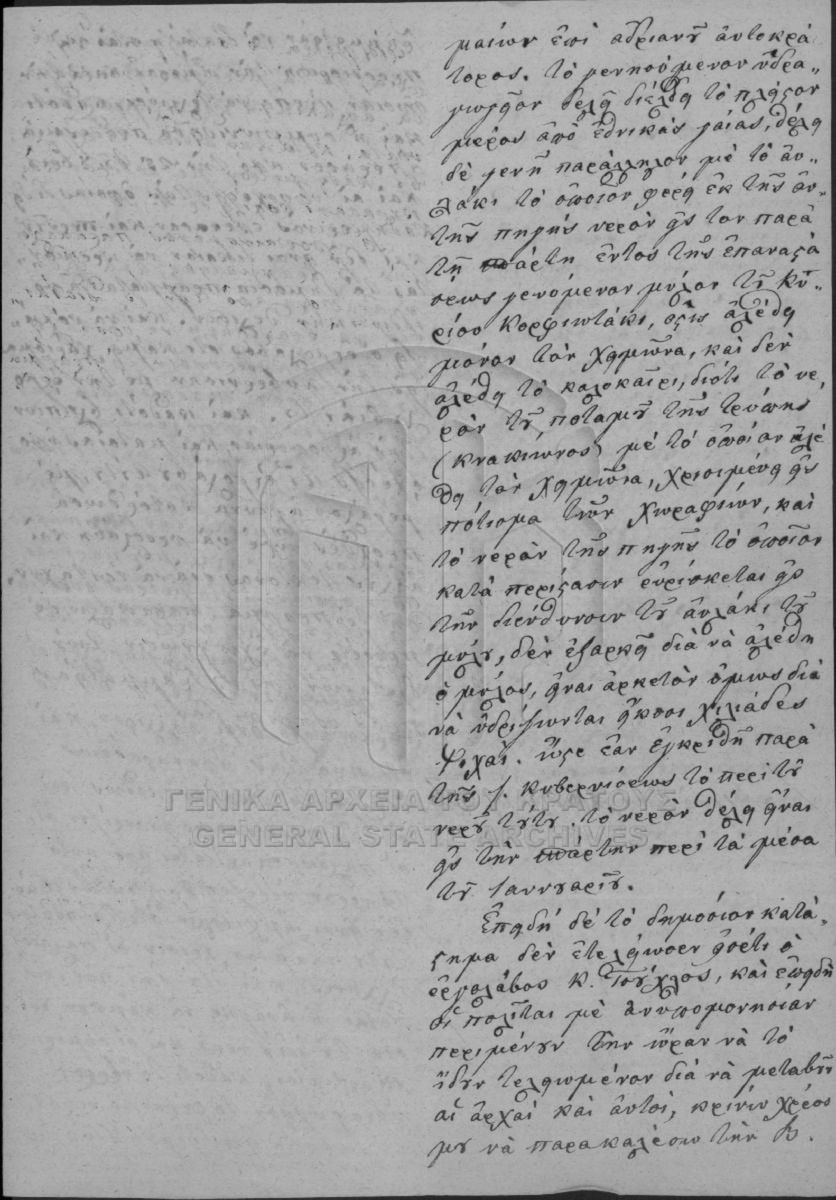 μαίων ἐπὶ ἀδριανοῦ ἀυτοκρά
τορος. τὸ γενησόμενον ὑδρα„
γωγεῖον θελεῖ διέλθει τὸ πλεῖςον
μέρος ἀπὸ ἐθνικὰς γαίας, θέλει
δὲ γενῆ παράλληλον μὲ τὸ ἀυ„
λάκι τὸ ὁποῖον φέρει ἐκ τῆς ἀυ„
τῆς πηγῆς νερὸν εἰς τον παρὰ
τῇ σπάρτῃ ἐντος τῆς ἐπαναςά
σεως γενόμενον μύλον τοῦ κυ„
ρίου Κορφιωτάκι, ὅςις ἀλέθει
μόνον τὸν χειμῶνα, καὶ δὲν
ἀλέθει τὸ καλοκαῖρι, διότι τὸ νε„
ρὸν τοῦ ποταμοῦ τῆς τρύπης
(κνακιωνος) μέ τὸ ὁποῖον ἀλέ
θει τὸν χειμῶνα, χρισιμέυει εἰς
πότισμα τῶν χωραφιῶν, καὶ
τὸ νερὸν τῆς πηγῆς τὸ ὁποῖον
κατὰ περίςασιν ἑυρίσκεται εἰς
τὴν διεύθυνσιν τοῦ ἀυλάκι τοῦ
μύλου, δὲν ἐξαρκεῖ διὰ νὰ ἀλέθῃ
ὁ μύλος, εἶναι ἀρκετὸν ὅμως διὰ
νὰ ὑδρίζωνται εἴκοσι χιλιάδες
ψυχαί. ὥςε ἐὰν ἐγκριθῆ παρὰ
τῆς κυβερνήσεως τὸ περὶ τοῦ
νεροῦ τούτου, τὸ νερὸν θέλει εἶναι
εἰς τὴν σπάρτην περὶ τὰ μέσα
τοῦ Ιαννουαρίου.
Ἐπειδή δὲ τὸ δημόσιον κατά„
ςημα δὲν ἐτελείωσεν εἰσέτι ὁ
ἐργολάβος κ. Τσούχλος, καὶ ἐπειδὴ
οἱ πολῖται μὲ ἀνυπομονησίαν
περιμένουν τὴν ὥραν νὰ τὸ
ἴδουν τελειωμένον διὰ νὰ μεταβοῦν
αἱ ἀρχαὶ καὶ ἀυτοί, κρίνω χρέος
μου νὰ παρακαλέσω τὴν Β.
ΓΕΝΙΚΑ ΑΡΧΕΙΑ ΤΟΥ ΚΡΑΤΟΥΣ
GENERAL STATE ARCHIVES